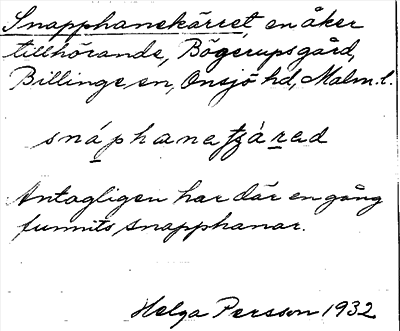 Snapphanekärret, en åker
tillhörande, Bögerupsgård,
Billinge sn, Onsjö hd, Malm. l.
snáphanetʒárad
Antagligen har där en gång
funnits snapphanar.
Helga Persson 1932